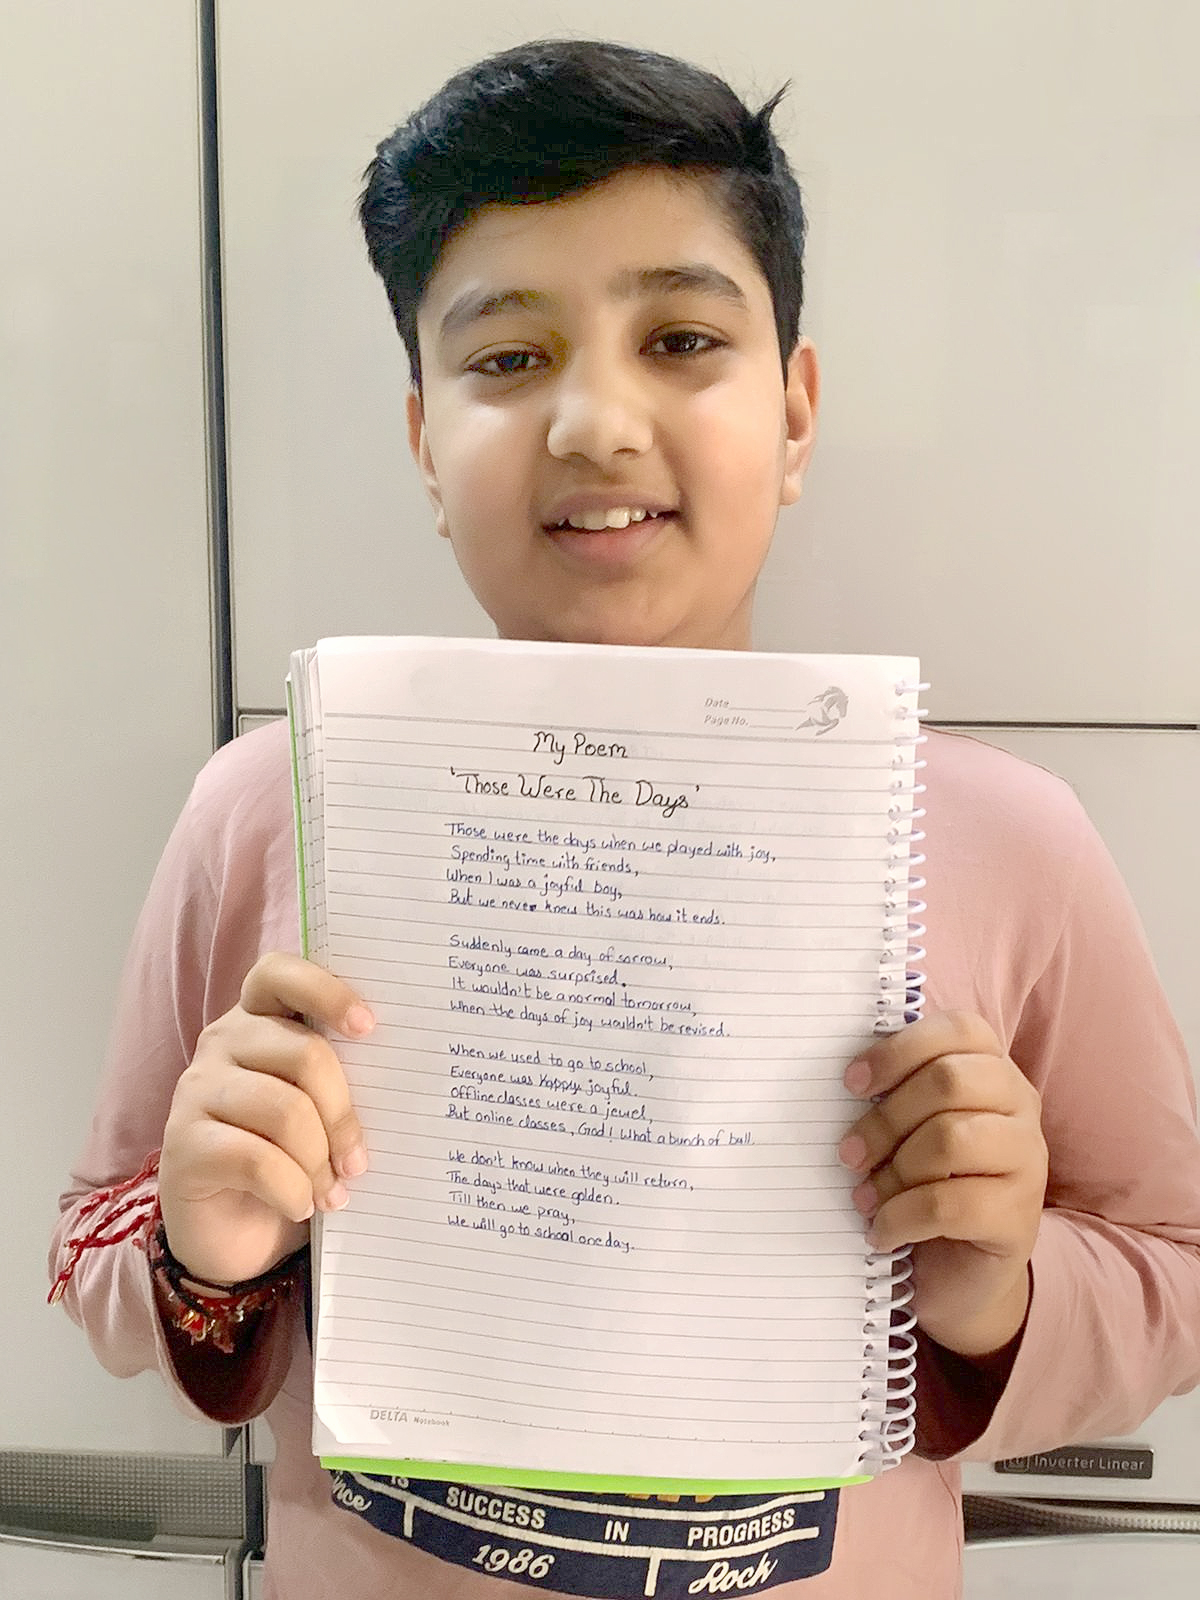 Date
Page No.
My Poem
'Those Were The Days'
Those were the days when we played with joy,
Spending time with friends,
When I was a joyful boy,
But we never knew this was how it ends.
Suddenly came a day of sorrow,
Everyone was surprised.
It wouldn't be a normal tomorrow,
When the days of joy wouldn't be revised.
When we used to go to school,
Everyone was happy joyful.
Offline classes were a jewel,
But online classes, God! What a bunch of bull.
We don't know when they will return,
The days that were golden.
Till then we pray,
We will go to school one day.
DELTA Notebook
Inverter Linear
IS
SUCCESS IN PROGRESS
1986 Rock